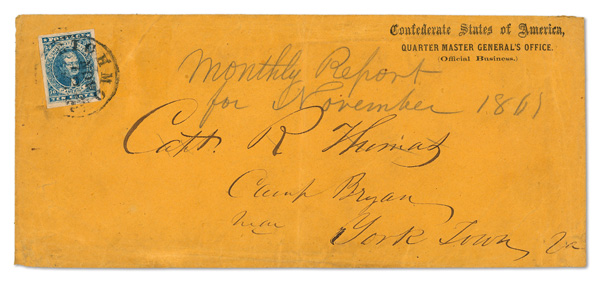 Confederate States of America,
QUARTER MASTER GENERAL'S OFFICE.
(Official Business.)
Monthly Report
for November 1861
Capt. R Thomas
Camp Bryan
near
York Town, Va
POSTAGE
TEN CENTS
ICHMO